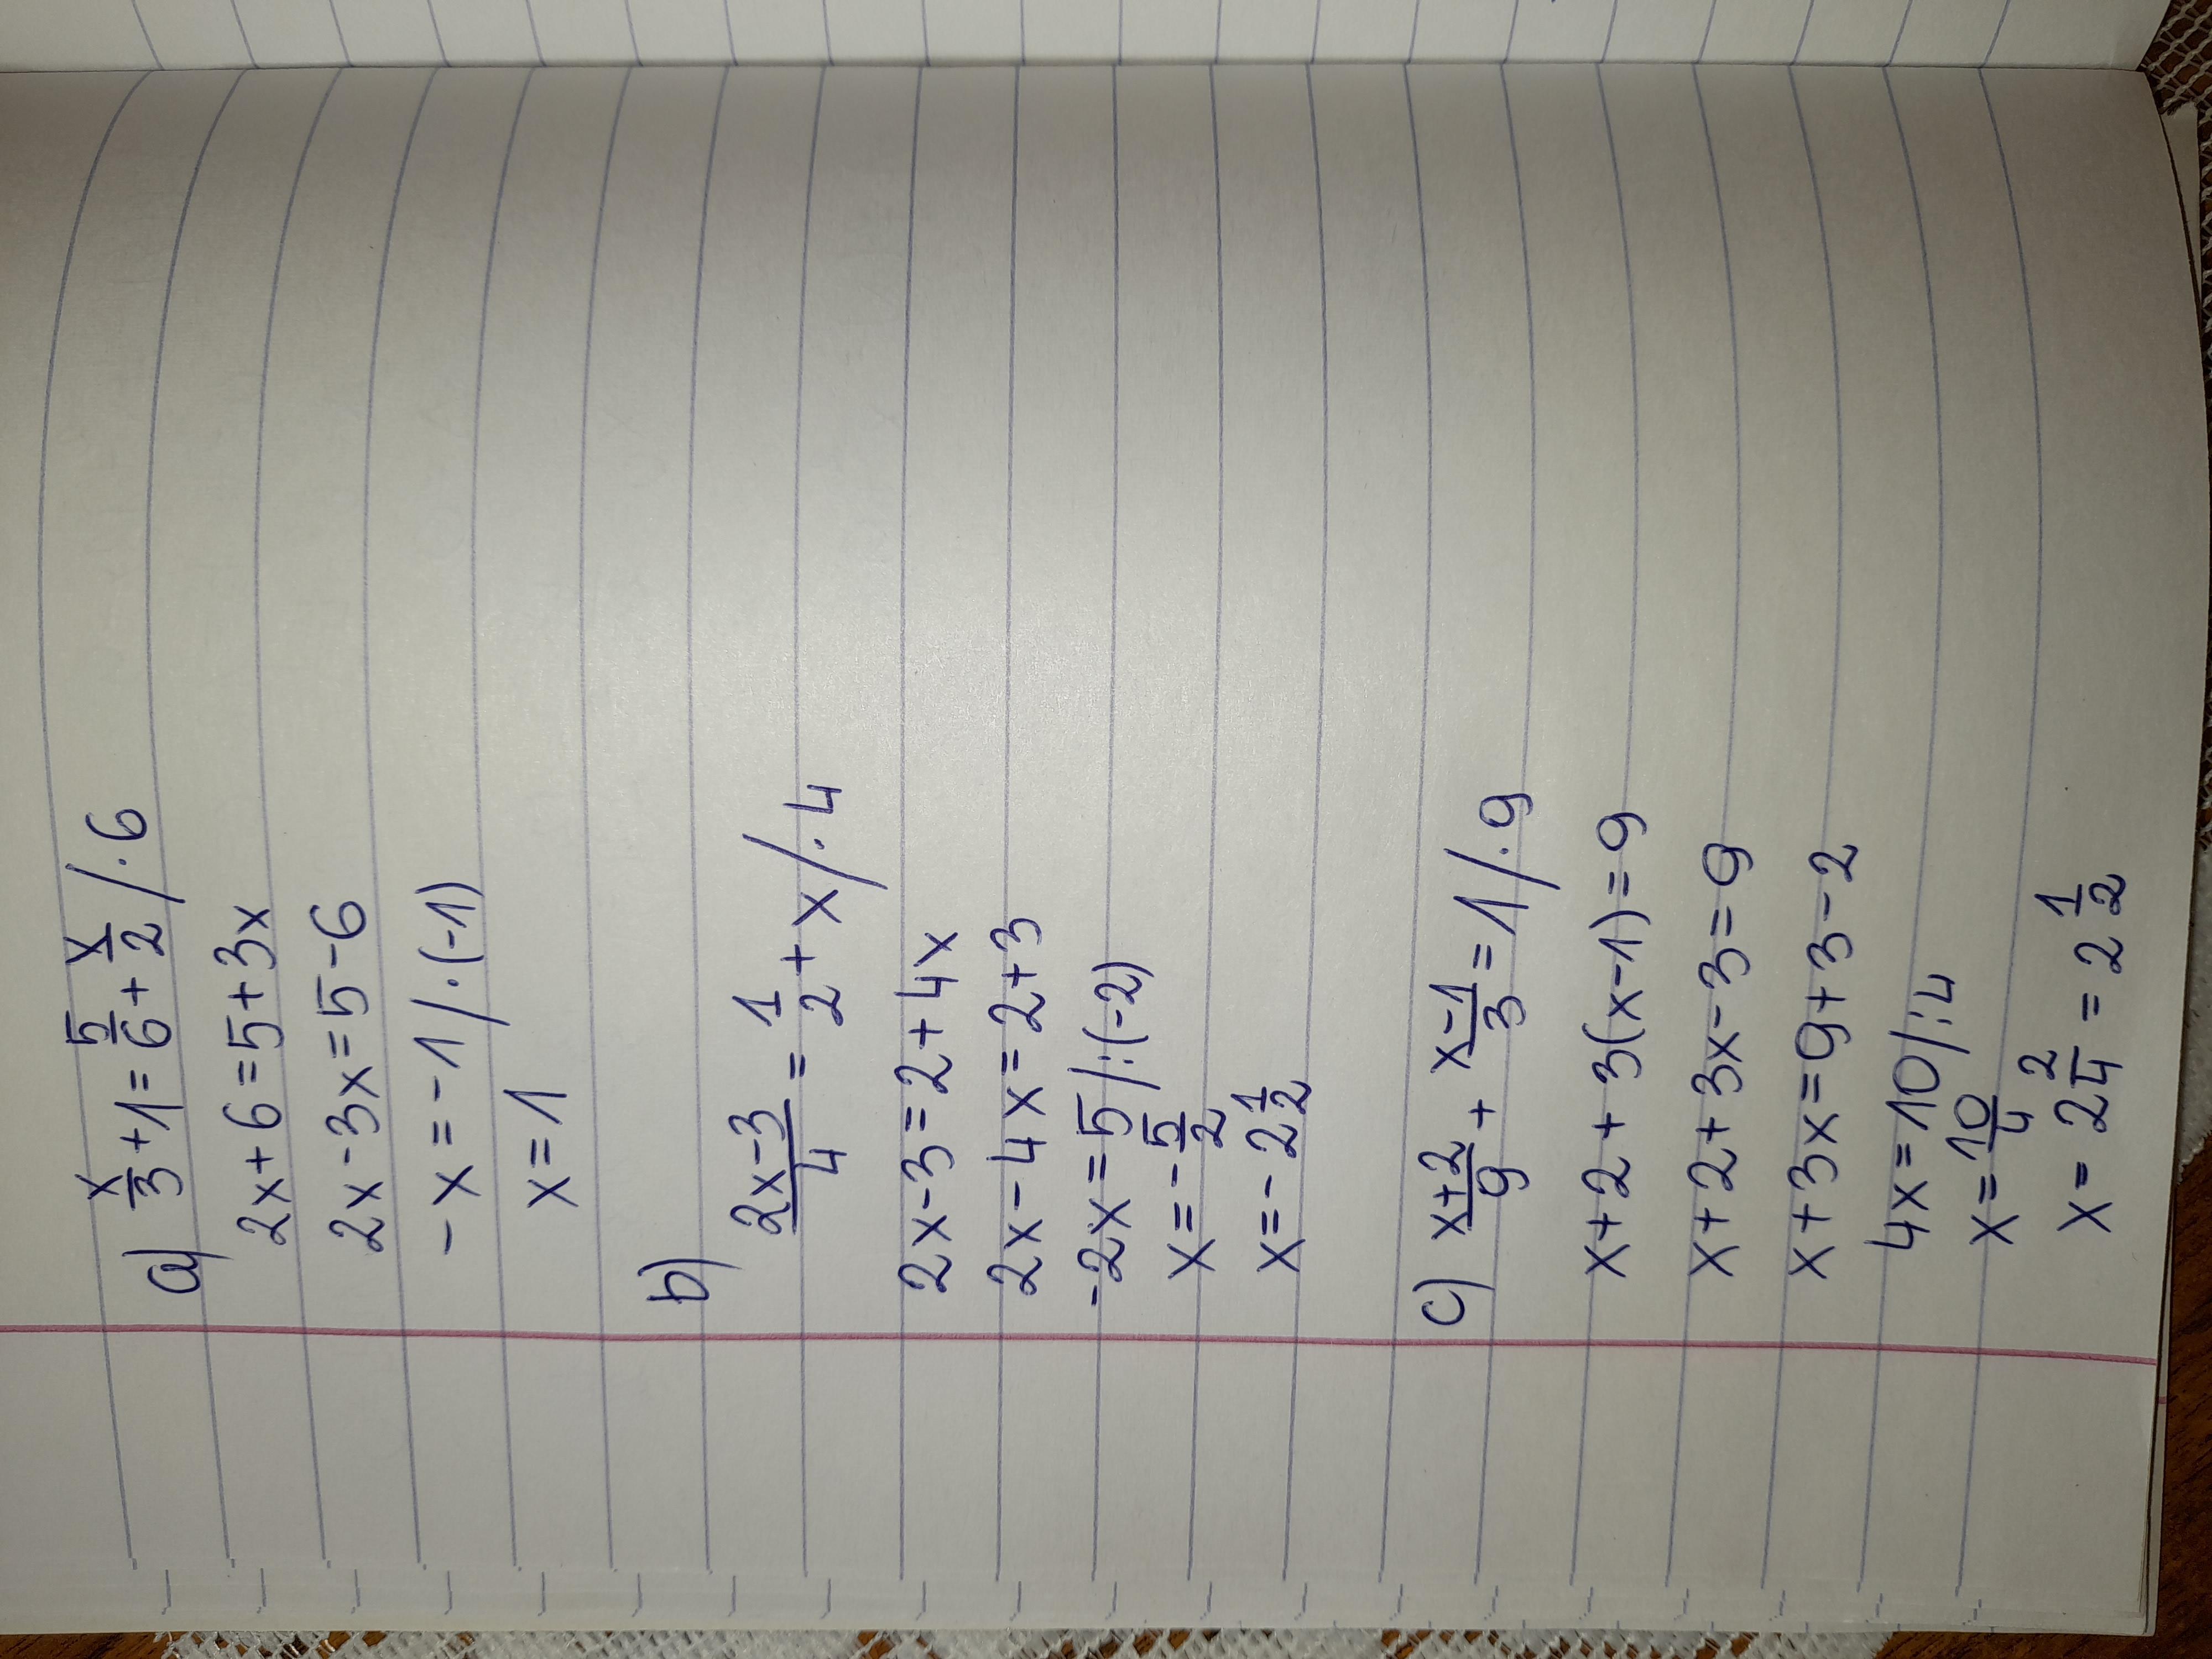 a) x/3 + 1 = 5/6 + x/2 /·6
2x + 6 = 5 + 3x
2x - 3x = 5 - 6
- x = -1 /·(-1)
x = 1
b) 2x-3/4 = 1/2 + x /·4
2x - 3 = 2 + 4x
2x - 4x = 2 + 3
-2x = 5 /:(-2)
x = - 5/2
x = - 2 1/2
c) x+2/9 + x-1/3 = 1 /·9
x + 2 + 3(x-1) = 9
x + 2 + 3x - 3 = 9
x + 3x = 9 + 3 - 2
4x = 10 /:4
x = 10/4
x = 2 2/4 = 2 1/2